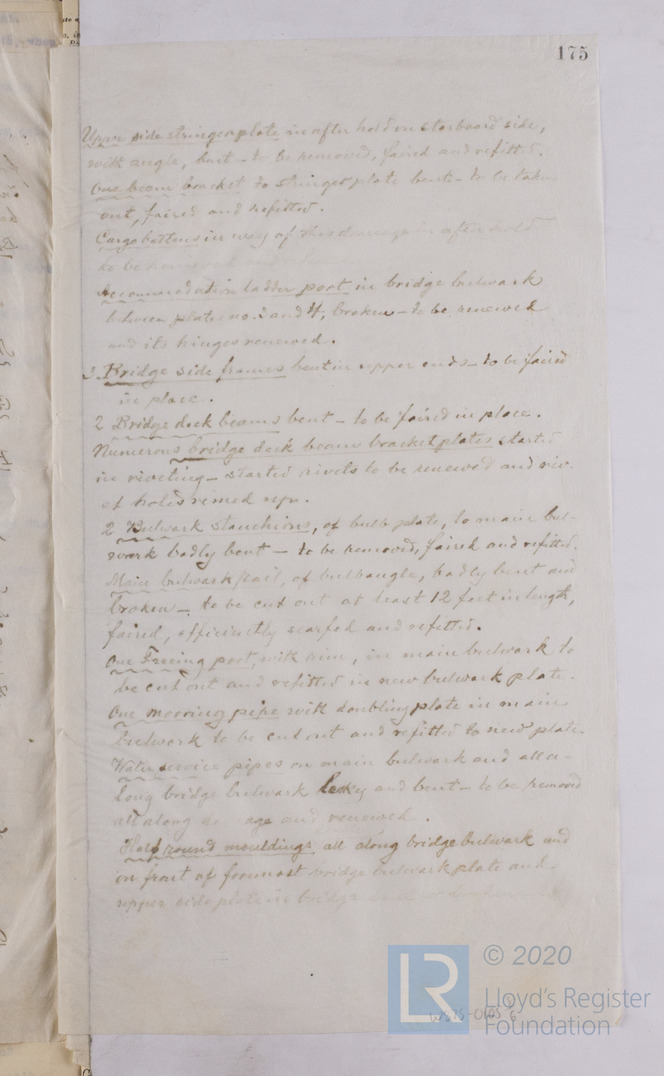 175
Upper side stringer plate in after hold on starboard side,
with angle, bent - to be removed, faired and refitted.
One beam bracket to stringer plate bent - to be taken
out, faired and refitted.
Cargo battens in way of this damage in after hold
to be
Accommodation ladder port in bridge bulwark
between plates no. 3 and 4, broken - to be renewed
and its hinges renewed.
3 Bridge side frames bent in upper ends - to be faired
in place.
2 Bridge deck beams bent - to be faired in place.
Numerous bridge deck beams bracket plates started
in riveting - started rivets to be renewed and riv-
et holes rimed
2 Bulwark stanchions, of bulb plate, to main bul-
wark badly bent - to be removed, faired and refitted.
Main bulwark rail, of bulbangle, badly bent and
broken - to be cut out at least 12 feet in length,
faired, efficiently scarfed and refitted.
One Freeing port, with rim, in main bulwark to
be cut out and refitted in new bulwark plate.
One mooring pipe with doubling plate in main
bulwark to be cut out and refitted to new plate.
Water service pipes on main bulwark and all a-
long bridge bulwark leaky and bent - to be removed
all along age and renewed.
Half round mouldings all along bridge bulwark and
on front of foremost bridge bulwark plate and
upper side plate in bridge
© 2020
LR
Lloyd's Register
Foundation